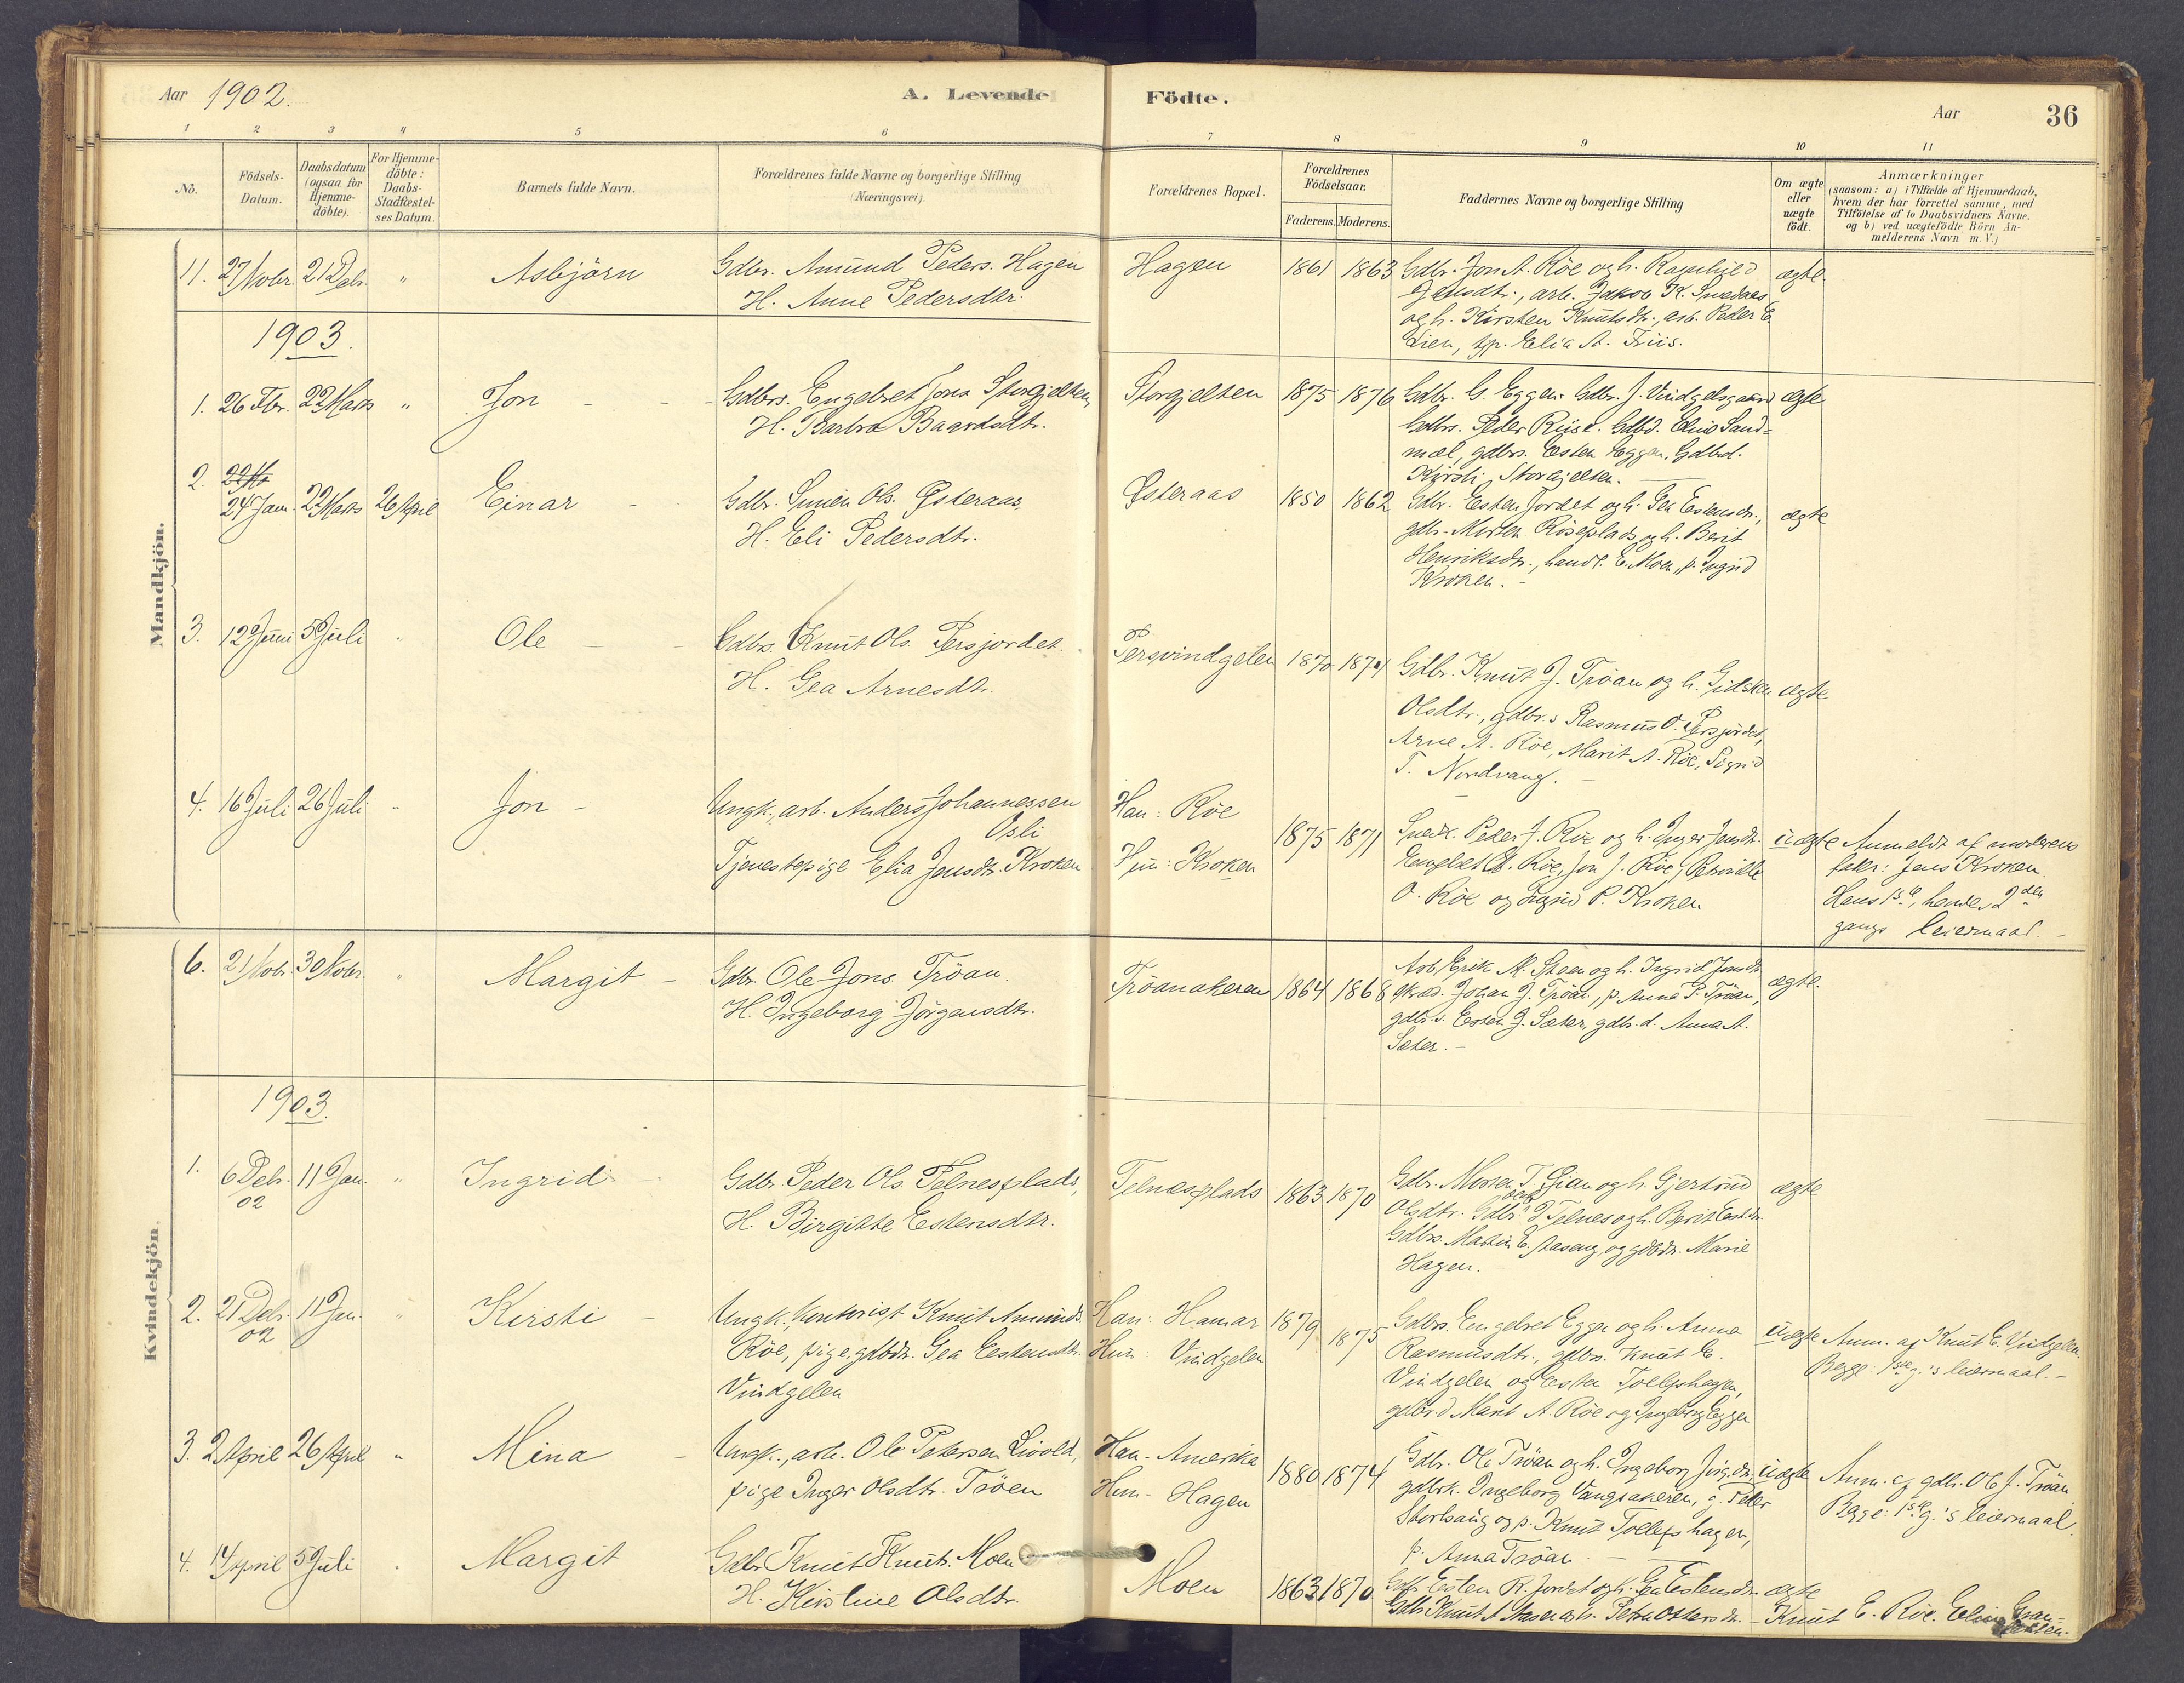 Aar 1902.
A. Levende Födte.
Aar
36
1 2 3 4 5 6 7 8 9 10 11
No.
Födsels-
Datum.
Daabsdatum
(ogsaa for
Hjemme-
döbte).
For Hjemme-
döbte:
Daabs-
Stadfæstel-
ses Datum.
Barnets fulde Navn.
Forældrenes fulde Navne og borgerlige Stilling
(Næringsvei).
Forældrenes Bopæl.
Forældrenes
Födselsaar.
Faderens. Moderens.
Faddernes Navne og borgerlige Stilling
Om ægte
eller
uægte
födt.
Anmærkninger
(saasom: a) i Tilfælde af Hjemmedaab,
hvem der har forrettet samme, med
Tilföielse af to Daabsvidners Navne.
og b) ved uægtefödte Börn An-
melderens Navn m. V.)
Mandkjön.
11. 27 Nobr. 21 Debr. " Asbjörn
Gdbr. Amund Peders. Hagen
H. Anne Pedersdtr.
Hagen 1861 1863
Gdbr. Jon A. Röe og h. Ragnhild
Jensdtr., arb. Jakob K. Snedaes
og h. Kirsten Knutsdtr., arb. Peder E.
Lien, tjp. Elia A. Friis.
ægte.
1903.
1. 26 Fbr. 22 Marts " Jon
Gdbrs. Engebret Jons. Storgjelten,
H. Barbra Baardsdtr.
Storgjelten 1875 1876
Gdbr. G. Eggen. Gdbr. J. Vindgelsgaard
Gdbrs. Peder Riise. Gdbd. Eline Sand-
mæl, gdbrs. Esten Eggen, Gdbrd.
Kjirsti Storgjelten.
ægte
2. 24 Jan. 22 Marts 26 April Einar
Gdbr. Simen Ols. Østeraas
H. Eli Pedersdtr.
Østeraas 1850 1862
Gdbr. Esten Jordet og h. Gea Estensdr.,
gdbr. Morten Röseplads og h. Berit
Henriksdtr., handl. E. Moen, p. Ingrid
Kroken.
ægte
3. 12 Juni 5 Juli " Ole
Gdbrs. Knut Ols. Persjordet
H. Gea Arnesdtr.
Persvindgelen 1870 1874
Gdbr. Knut J. Tröan og h. Gidsken
Olsdtr., gdbr.s Rasmus O. Persjordet,
Arne A. Röe, Marit A. Röe, Sigrid
T. Nordvang.
ægte
4. 16 Juli 26 Juli " Jon
Ungk., arb. Anders Johannessen
Osli
Tjenestepige Elia Jensdtr. Kroken
Han: Röe
Hun: Kroken
1875 1871
Snedk. Peder J. Röe og h. Inger Jensdtr.
Engebret A. Röe, Jon J. Röe, Petronille
O. Röe og Sigrid P. Kroken
uægte
Anmeldt af moderens
fader: Jens Kroken.
Hans 1ste, hendes 2den
gangs leiermaal.
Kvindekjön.
6. 21 Nobr. 30 Nobr. " Margit
Gdbr. Ole Jons. Tröan.
H. Ingeborg Jörgensdtr.
Tröanakeren 1864 1868
Arb. Erik M. Steen og h. Ingrid Jonsdtr.
skræd. Johan J. Tröan, p. Anna P. Tröan,
gdbr.s. Esten J. Sæter, gdbr.d. Anna A.
Sæter.
ægte.
1903.
1. 6 Debr. 02 11 Jan. " Ingrid
Gdbr. Peder Ols. Telnesplads,
H. Birgitte Estensdtr.
Telnesplads 1863 1870
Gdbr. Morten T. Lian og h. Gjertrud
Olsdtr. Gdbr. Telnes og h. Berit Est.dtr.
Gdbrs. Martin E. Aaseng og gdbdr. Marie
Hagen.
ægte
2. 21 Debr. 02 11 Jan. " Kirsti
Ungk., kontorist Knut Amunds.
Röe, pige, gdbdr. Gea Estensdtr.
Vindgelen
Han: Hamar
Hun: Vindgelen
1879 1875
Gdbrs. Engebret Eggen og h. Anna
Rasmusdtr., gdbrs. Knut E.
Vindgelen og Esten Tollefshagen,
gdbrd Marit A. Röe og Ingeborg Eggen
uægte
Anm. af Knut E. Vindgelen.
Begge: 1ste g.'s leiermaal.
3. 2 April 26 April " Mina
Ungk., arb. Ole Petersen Livold,
pige Inger Olsdtr. Tröen
Han - Amerika
Hun - Hagen
1880 1874
Gdbr. Ole Tröan og h. Ingeborg Jörg.dr.,
gdbrk. Ingeborg Vangsakeren, g. Peder
Storhaug og p. Knut Tollefshagen,
p. Anna Tröan
uægte
Anm. af gdbr. Ole J. Tröan
Begge: 1ste g.'s leiermaal.
4. 14 April 5 Juli " Margit
Gdbr. Knut Knuts. Moen
H. Kirstine Olsdtr.
Moen 1863 1870
Gdbr. Esten R. Jordet og h. Gea Estensdtr.
ægte
Gdbr. Knut Aasen og h. Petra Ottersdr. - Knut E. Röe. Eline